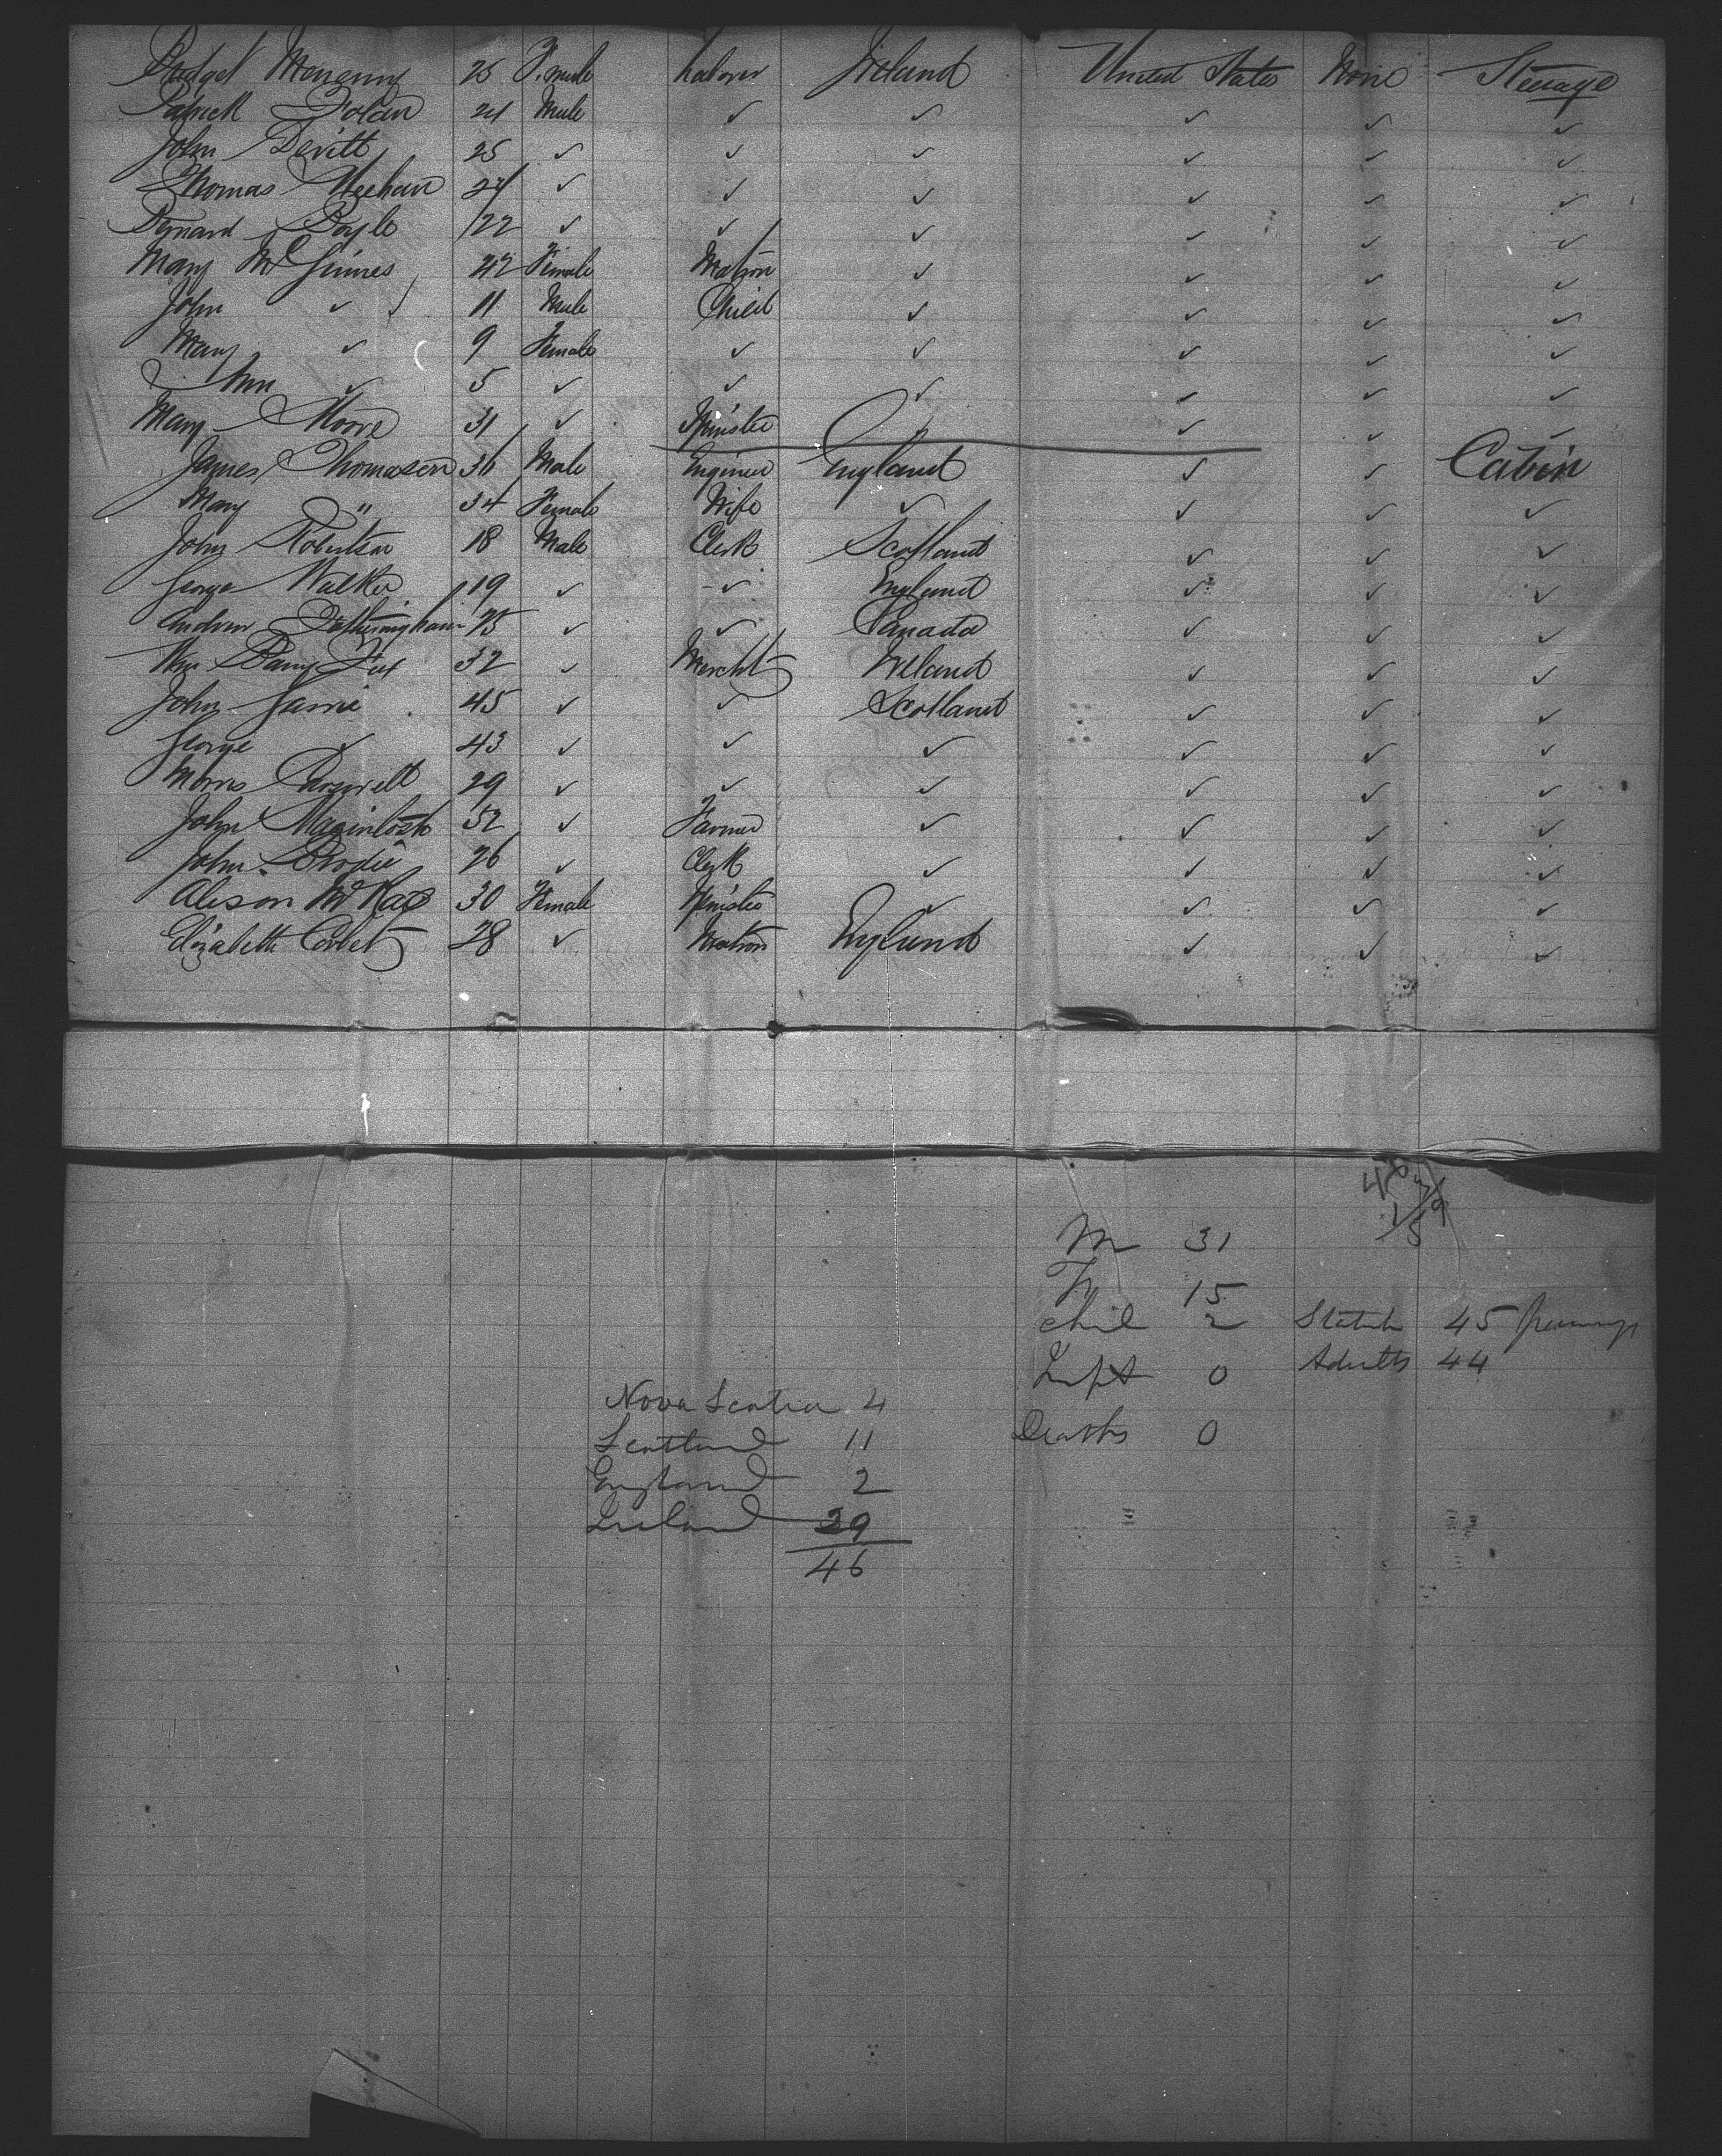 Bridget 25 Female Laborer Ireland United States None Steerage
Patrick Dolan 24 Male ✓ ✓ ✓ ✓ ✓
John Devitt 25 ✓ ✓ ✓ ✓ ✓ ✓
Thomas Meehan 24 ✓ ✓ ✓ ✓ ✓ ✓
Bernard Boyle 22 ✓ ✓ ✓ ✓ ✓ ✓
Mary McGinnes 42 Female Matron ✓ ✓ ✓ ✓
John ✓ 11 Male Child ✓ ✓ ✓ ✓
Mary ✓ 9 Female ✓ ✓ ✓ ✓ ✓
Ann ✓ 5 ✓ ✓ ✓ ✓ ✓ ✓
Mary Moore 31 ✓ Spinster ✓ ✓ ✓ ✓
James Thomasen 36 Male Engineer England ✓ ✓ Cabin
Mary " 34 Female Wife ✓ ✓ ✓ ✓
John Robertson 18 Male Clerk Scotland ✓ ✓ ✓
George Walker 19 ✓ ✓ England ✓ ✓ ✓
Andrew 25 ✓ ✓ Canada ✓ ✓ ✓
Wm Barry Fox 32 ✓ Mercht Ireland ✓ ✓ ✓
John Jamie 45 ✓ ✓ Scotland ✓ ✓ ✓
George ✓ 43 ✓ ✓ ✓ ✓ ✓ ✓
Morris 29 ✓ ✓ ✓ ✓ ✓ ✓
John Macintosh 52 ✓ Farmer ✓ ✓ ✓ ✓
John Brodie 26 ✓ Clerk ✓ ✓ ✓ ✓
Alison McKay 30 Female Spinster ✓ ✓ ✓ ✓
Elizabeth Corbet 28 ✓ Matron England ✓ ✓ ✓
M 31
F 15
Chil 2 Statute 45
Inft 0 Adults 44
Nova Scotia 4
Deaths 0
Scotland 11
England 2
Ireland 29
46